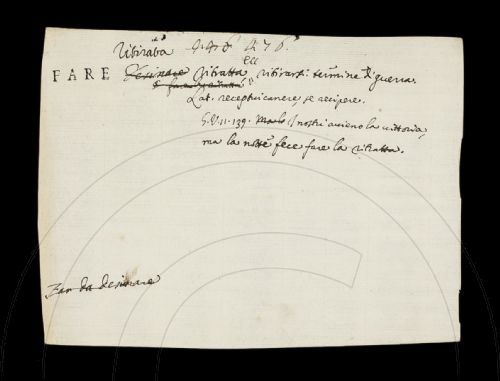 476.
FARE Desinare Ritratta ritirarsi: termine di guerra.
Lat. receptui canere, se recipere.
G.V. 11. 139. I nostri avieno la vittoria,
ma la notte fece fare la ritratta.
Far da desinare